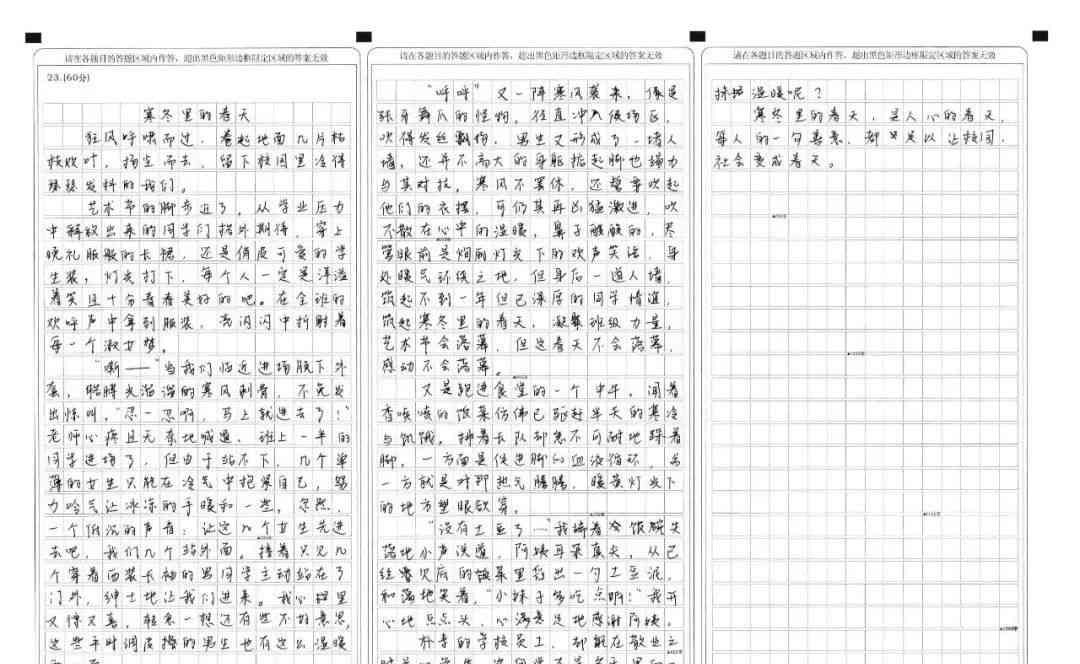 请在各题目的答题区域内作答，超出黑色矩形边框限定区域的答案无效
23.(60分)
寒冬里的春天
狂风呼啸而过，卷起地面几片枯
枝败叶，扬尘而去，留下校园里冷得
瑟瑟发抖的我们。
艺术节的脚步近了，从学业压力
中解放出来的同学们格外期待，穿上
晚礼服般的长裙，还是俏皮可爱的学
生装，灯光打下，每个人一定是洋溢
着笑且十分青春美好的吧。在全班的
欢呼声中拿到服装，亮闪闪中折射着
每一个淑女梦。
“嘶——”当我们临近进场脱下外
套，胳膊光溜溜的寒风刺骨，不免发
出惊叫，“忍一忍啊，马上就进去了！”
老师心疼且无奈地喊道，班上一半的
同学进场了，但由于站不下，几个单
薄的女生只能在冷气中抱紧自己，努
力哈气让冰冻的手暖和一些，忽然，
一个低沉的声音：让这几个女生先进
去吧，我们几个站外面。接着只见几
个穿着西装长袖的男同学主动站在了
门外，绅士地让我们进来。我心里
又惊又喜，轻念一想还有些不好意思，
这些平时调皮捣的男生也有这么温暖
请在各题目的答题区域内作答，超出黑色矩形边框限定区域的答案无效
“呼呼”又一阵寒风袭来，像是
张牙舞爪的怪物，径直冲入候场区，
吹得发丝飘扬，男生又形成了一堵人
墙，还并不高大的身躯掂起脚也竭力
与其对抗，寒风不罢休，还誓要吹起
他们的衣摆，可任其再凶猛激进，吹
不散在心中的温暖，鼻子酸酸的，尽
管眼前是绚丽灯光下的欢声笑语，身
处暖气环绕之地，但身后一道人墙，
筑起不到一年但已深厚的同学情谊，
筑起寒冬里的春天，凝聚班级力量，
艺术节会落幕，但这春天不会落幕，
感动不会落幕。
又是跑进食堂的一个中午，闻着
香喷喷的饭菜仿佛已驱赶半天的寒冷
与饥饿，排着长队却急不可耐地跺着
脚，一方面是促进脚的血液循环，另
一方就是对那热气腾腾，暖黄灯光下
的地方望眼欲穿。
“没有土豆了”我端着饭碗失
落地小声说道，阿姨耳朵真尖，从已
经见底的饭菜里舀出一勺土豆泥，
和蔼地笑着，“小妹子多吃点啊！”我开
心地点点头，心满意足地感谢阿姨。
朴素的学校员工，却能在散业之
请在各题目的答题区域内作答，超出黑色矩形边框限定区域的答案无效
温暖呢？
寒冬里的春天，是人心的春天，
每人的一句善意，都足以让校园，
社会变成春天。